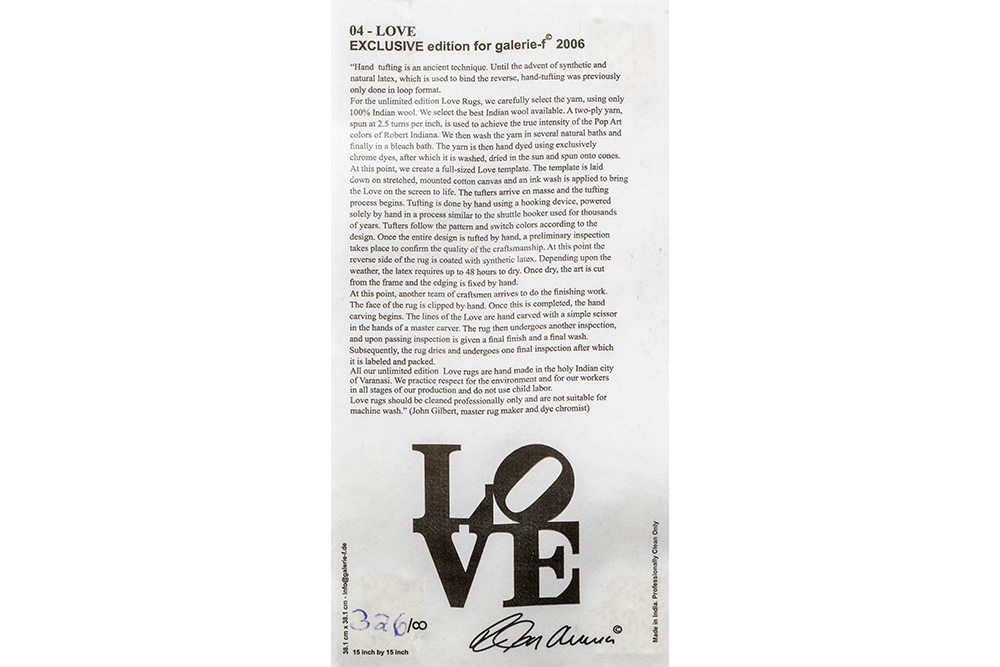 04 - LOVE
EXCLUSIVE edition for galerie-f© 2006
“Hand tufting is an ancient technique. Until the advent of synthetic and
natural latex, which is used to bind the reverse, hand-tufting was previously
only done in loop format.
For the unlimited edition Love Rugs, we carefully select the yarn, using only
100% Indian wool. We select the best Indian wool available. A two-ply yarn,
spun at 2.5 turns per inch, is used to achieve the true intensity of the Pop Art
colors of Robert Indiana. We then wash the yarn in several natural baths and
finally in a bleach bath. The yarn is then hand dyed using exclusively
chrome dyes, after which it is washed, dried in the sun and spun onto cones.
At this point, we create a full-sized Love template. The template is laid
down on stretched, mounted cotton canvas and an ink wash is applied to bring
the Love on the screen to life. The tufters arrive en masse and the tufting
process begins. Tufting is done by hand using a hooking device, powered
solely by hand in a process similar to the shuttle hooker used for thousands
of years. Tufters follow the pattern and switch colors according to the
design. Once the entire design is tufted by hand, a preliminary inspection
takes place to confirm the quality of the craftsmanship. At this point the
reverse side of the rug is coated with synthetic latex. Depending upon the
weather, the latex requires up to 48 hours to dry. Once dry, the art is cut
from the frame and the edging is fixed by hand.
At this point, another team of craftsmen arrives to do the finishing work.
The face of the rug is clipped by hand. Once this is completed, the hand
carving begins. The lines of the Love are hand carved with a simple scissor
in the hands of a master carver. The rug then undergoes another inspection,
and upon passing inspection is given a final finish and a final wash.
Subsequently, the rug dries and undergoes one final inspection after which
it is labeled and packed.
All our unlimited edition Love rugs are hand made in the holy Indian city
of Varanasi. We practice respect for the environment and for our workers
in all stages of our production and do not use child labor.
Love rugs should be cleaned professionally only and are not suitable for
machine wash.” (John Gilbert, master rug maker and dye chromist)
LO
VE
38.1 cm x 38.1 cm - info@galerie-f.de
326/∞
15 inch by 15 inch
©
Made in India. Professionally Clean Only